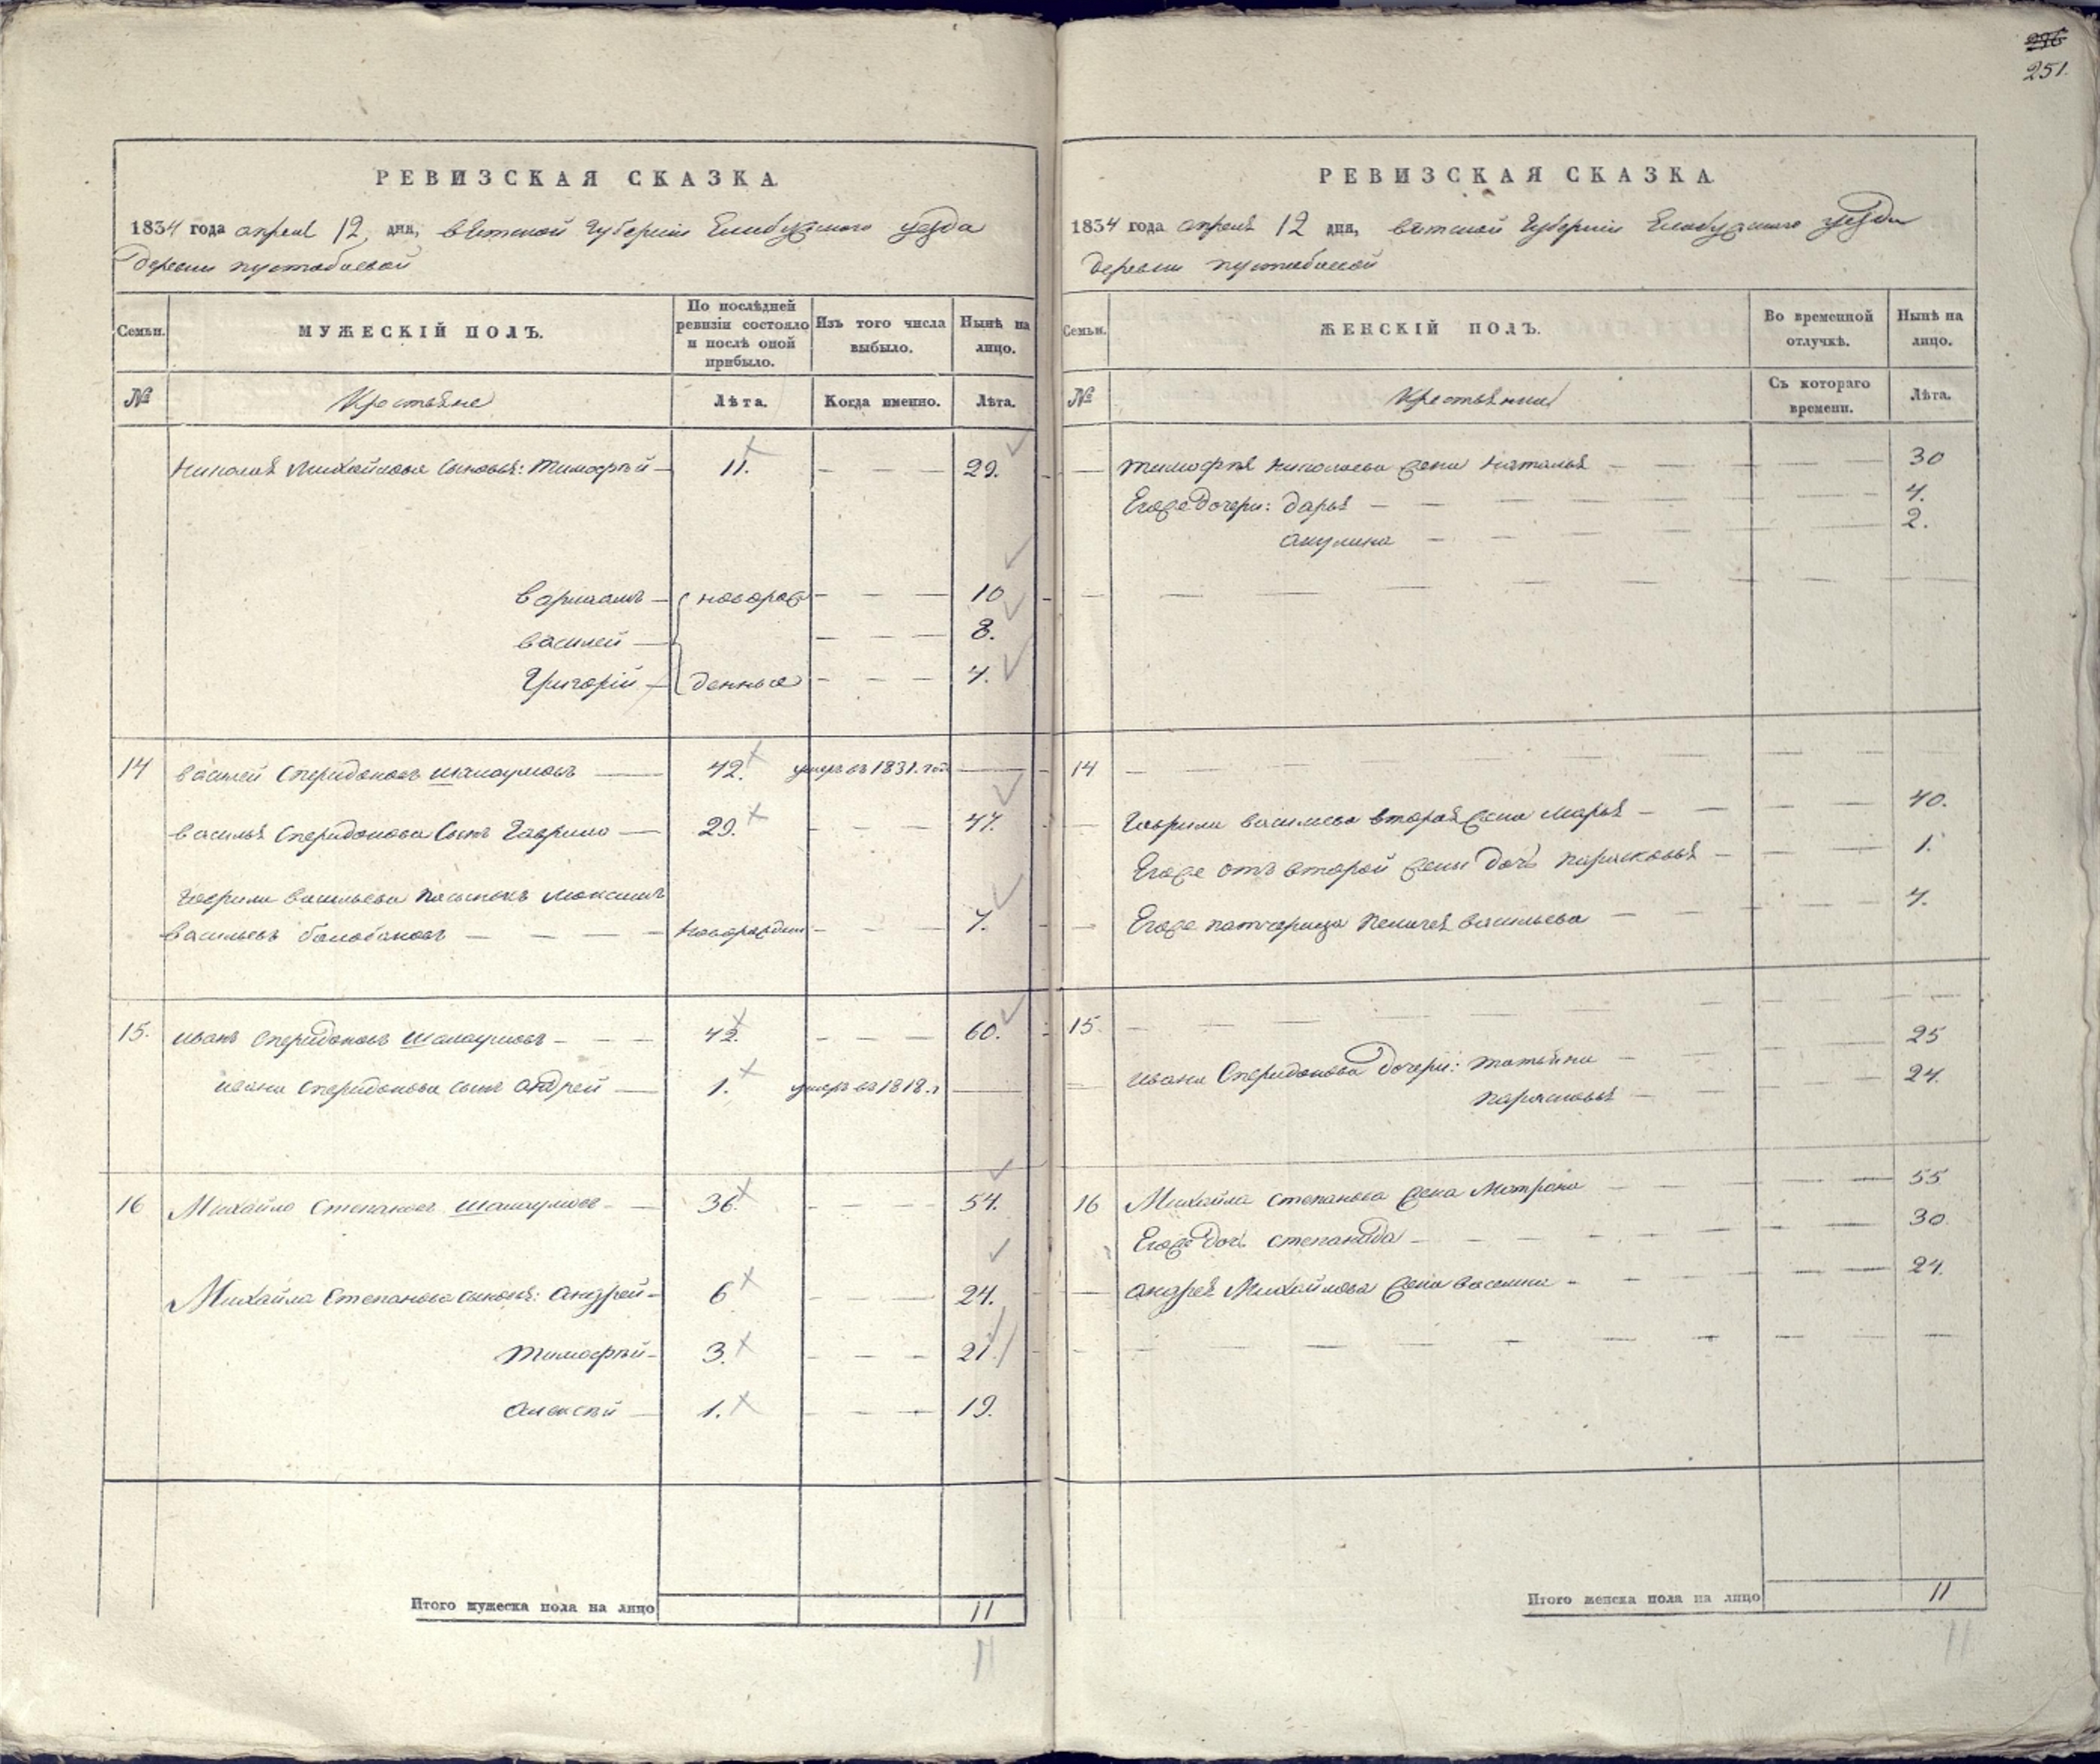 296
251.
РЕВИЗСКАЯ СКАЗКА
1834 года апреля 12 дня, вятской губернии Елабужского уезда
деревни пустобаевой
Семьи.
МУЖЕСКІЙ ПОЛЪ.
По послѣдней ревизіи состояло и послѣ оной прибыло.
Изъ того числа выбыло.
Нынѣ на лицо.
№
Крестьяне
Лѣта.
Когда именно.
Лѣта.
Николая Михайлова сыновья: Тимофѣй — 11. — — — 29.
варлаамъ — новорож — — — 10
василей — — — — 8.
Григорій — денные — — — 4.
14 василей Спиридоновъ — 42. умеръ въ 1831. год —
василья Спиридонова сынъ Гаврило — 29. — — — 47.
Гаврила васильева пасынокъ Максимъ
васильевъ — — — новорожден — — — 7.
15. иванъ Спиридоновъ — — — 42. — — — 60.
ивана Спиридонова сынъ андрей — 1. умеръ въ 1818. г —
16 Михайло Степановъ — — 36. — — — 54.
Михайла Степанова сыновья: андрей — 6 — — — 24.
Тимофѣй — 3. — — — 21.
алексѣй — 1. — — — 19.
Итого мужеска пола на лицо 11
11
РЕВИЗСКАЯ СКАЗКА
1834 года апреля 12 дня, вятской губернии Елабужского уезда
деревни пустобаевой
Семьи.
ЖЕНСКІЙ ПОЛЪ.
Во временной отлучкѣ.
Нынѣ на лицо.
№
Крестьянки
Съ котораго времени.
Лѣта.
Тимофея Николаева жена Наталья — — — 30
Егоже дочери: дарья — — — 4.
акулина — — — 2.
14 — — —
Гаврила васильева вторая жена Марья — — — 40.
Егоже отъ второй жены дочь парасковья — — — 1.
Егоже патчерица Пелагея васильева — — — 4.
15. — — —
ивана Спиридонова дочери: татьяна — — — 25
парасковья — — — 24.
16 Михайла Степанова жена Матрона — — — 55
Егоже дочь степанида — — — 30.
андрея Михайлова жена — — — 24.
Итого женска пола на лицо 11
11